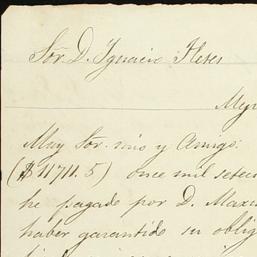 Sor. D. Ignacio Fletes
Muy Sor. mio y Amigo:
($11711.5) once mil setec
he pagado por D. Maxi
haber garantido su oblig